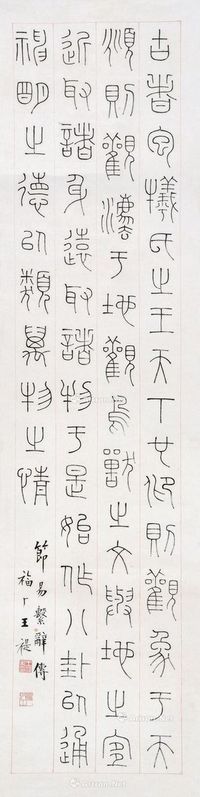 古者包犧氏之王天下也仰則觀象于天
頫則觀灋于地觀鳥獸之文與地之宜
近取諸身遠取諸物于是始作八卦㠯通
神明之德㠯類萬物之情
節易繫辭傳
福厂王禔